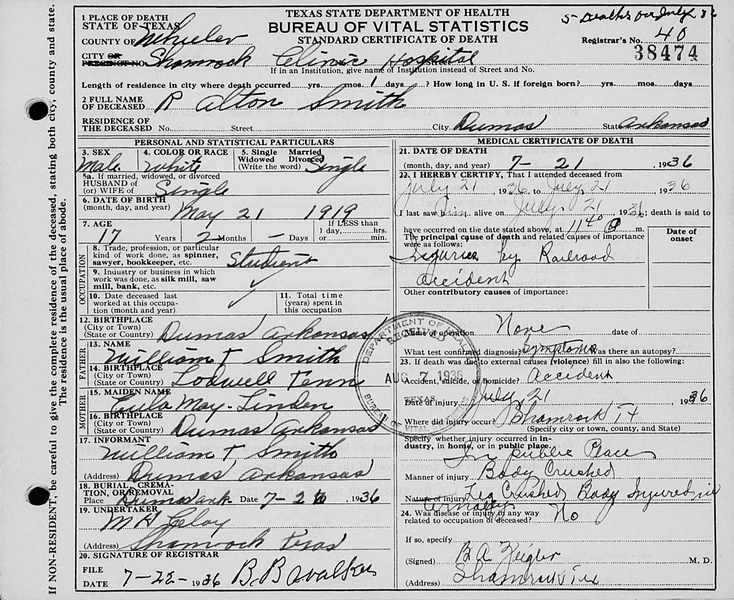 TEXAS STATE DEPARTMENT OF HEALTH
BUREAU OF VITAL STATISTICS
STANDARD CERTIFICATE OF DEATH
Registrar's No. 40
38474
1 PLACE OF DEATH
STATE OF TEXAS
COUNTY OF Wheeler
CITY OR PRECINCT NO. Shamrock Clinic Hospital
If in an Institution, give name of Institution instead of Street and No.
Length of residence in city where death occurred yrs. mos. 1 days? How long in U. S. if foreign born? yrs. mos. days
2 FULL NAME OF DECEASED R Alton Smith
RESIDENCE OF THE DECEASED No. Street City Dumas State Arkansas
PERSONAL AND STATISTICAL PARTICULARS
3. SEX Male
4. COLOR OR RACE White
5. Single Married Widowed Divorced (Write the word) Single
5a. If married, widowed, or divorced HUSBAND OF (or) WIFE OF Single
6. DATE OF BIRTH (month, day, and year) May 21 1919
7. AGE 17 Years 2 Months - Days If LESS than 1 day, hrs. or mins.
OCCUPATION
8. Trade, profession, or particular kind of work done, as spinner, sawyer, bookkeeper, etc. Student
9. Industry or business in which work was done, as silk mill, saw mill, bank, etc. ✓
10. Date deceased last worked at this occupation (month and year)
11. Total time (years) spent in this occupation
12. BIRTHPLACE (City or Town) (State or Country) Dumas Arkansas
FATHER
13. NAME William T. Smith
14. BIRTHPLACE (City or Town) (State or Country) Lodwell Tenn
MOTHER
15. MAIDEN NAME May Linden
16. BIRTHPLACE (City or Town) (State or Country) Dumas Arkansas
17. INFORMANT William T. Smith
(Address) Dumas, Arkansas
18. BURIAL, CREMATION, OR REMOVAL Place Dumas Ark. Date 7-2 1936
19. UNDERTAKER M H
(Address) Shamrock Texas
20. SIGNATURE OF REGISTRAR
FILE DATE 7-22-1936 B.B. Walker
MEDICAL CERTIFICATE OF DEATH
21. DATE OF DEATH (month, day, and year) 7-21 1936
22. I HEREBY CERTIFY, That I attended deceased from
July 21 1936 to July 21 1936
I last saw him alive on July 21 1936; death is said to
have occurred on the date stated above, at 1140
The principal cause of death and related causes of importance were as follows:
Date of onset
Injuries by Railroad
accident
Other contributory causes of importance:
Name of operation None date of
What test confirmed diagnosis? Symptoms Was there an autopsy?
23. If death was due to external causes (violence) fill in also the following:
Accident, suicide, or homicide? Accident
Date of injury July 21 1936
Where did injury occur? Shamrock Tx
(Specify city or town, county, and State)
Specify whether injury occurred in industry, in home, or in public place.
In public Place
Manner of injury Body Crushed
Nature of injury Leg Crushed Body Injured
24. Was disease or injury in any way related to occupation of deceased? No
If so, specify
(Signed) B.A. Zeigler M. D.
(Address) Shamrock Tex
DEPARTMENT OF HEALTH
RECEIVED
AUG 7 1936
TEXAS
BUREAU OF VITAL STATISTICS
If NON-RESIDENT, be careful to give the complete residence of the deceased, stating both city, county and state.
The residence is the usual place of abode.